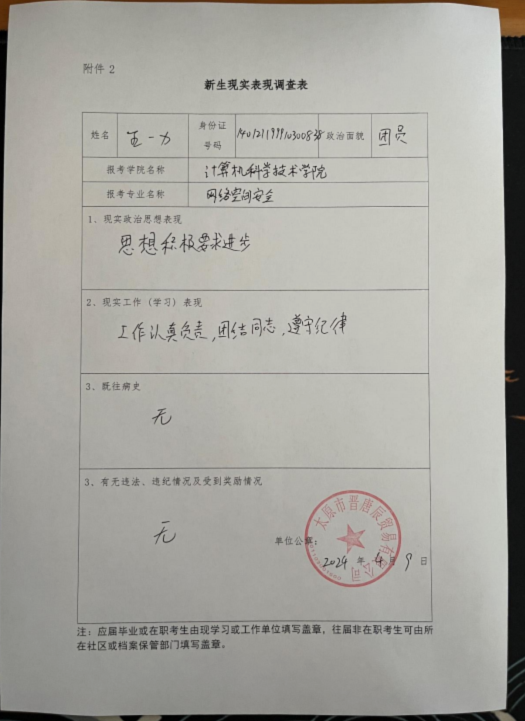 附件 2
新生现实表现调查表
姓名 王一力 身份证号码 政治面貌 团员
报考学院名称 计算机科学技术学院
报考专业名称 网络空间安全
1、现实政治思想表现
思想积极要求进步
2、现实工作（学习）表现
工作认真负责，团结同志，遵守纪律
3、既往病史
无
3、有无违法、违纪情况及受到奖励情况
无
太原市晋唐辰贸易有限公司
单位公章：
2024 年 4 月 9 日
注：应届毕业或在职考生由现学习或工作单位填写盖章，往届非在职考生可由所
在社区或档案保管部门填写盖章。